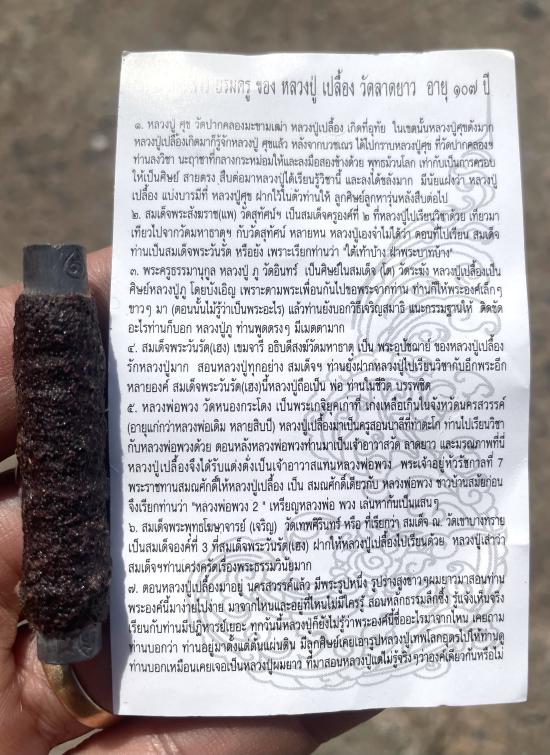 บรมครู ของ หลวงปู่ เปลื้อง วัดลาดยาว อายุ ๑๐๗ ปี
๑. หลวงปู่ ศุข วัดปากคลองมะขามเฒ่า หลวงปู่เปลื้อง เกิดที่อุทัย ในเขตนั้นหลวงปู่ศุขดังมาก
หลวงปู่เปลื้องเกิดมาก็รู้จักหลวงปู่ ศุขแล้ว หลังจากบวชเณร ได้ไปกราบหลวงปู่ศุข ที่วัดปากคลองฯ
ท่านลงวิชา นะฤาชาที่กลางกระหม่อมให้และลงมือสองข้างด้วย พุทธมัวนโลก เท่ากับเป็นการครอบ
ให้เป็นศิษย์ สายตรง สืบต่อมาหลวงปู่ได้เรียนรู้วิชานี้ และลงได้ขลังมาก มีนัยแฝงว่า หลวงปู่
เปลื้อง แบ่งบารมีที่ หลวงปู่ศุข ฝากไว้ในตัวท่านให้ ลูกศิษย์ลูกหารุ่นหลังสืบต่อไป
๒. สมเด็จพระสังฆราช(แพ) วัดสุทัศน์ฯ เป็นสมเด็จครูองค์ที่ ๒ ที่หลวงปู่ไปเรียนวิชาด้วย เที่ยวมา
เที่ยวไปจากวัดมหาธาตุฯ กับวัดสุทัศน์ หลายหน หลวงปู่เองจำไม่ได้ว่า ตอนที่ไปเรียน สมเด็จ
ท่านเป็นสมเด็จพระวันรัต หรือยัง เพราะเรียกท่านว่า "ใต้เท้าบ้าง ฝ่าพระบาทบ้าง"
๓. พระครูธรรมานุกูล หลวงปู่ ภู วัดอินทร์ เป็นศิษย์ในสมเด็จ (โต) วัดระฆัง หลวงปู่เปลื้องเป็น
ศิษย์หลวงปู่ภู โดยบังเอิญ เพราะตามพระเพื่อนกันไปขอพระจากท่าน ท่านก็ให้พระองค์เล็กๆ
ขาวๆ มา (ตอนนั้นไม่รู้ว่าเป็นพระอะไร) แล้วท่านยังบอกวิธีเจริญสมาธิ แนะกรรมฐานให้ ติดขัด
อะไรท่านก็บอก หลวงปู่ภู ท่านพูดตรงๆ มีเมตตามาก
๔. สมเด็จพระวันรัต(เฮง) เขมจารี อธิบดีสงฆ์วัดมหาธาตุ เป็น พระอุปัชฌาย์ ของหลวงปู่เปลื้อง
รักหลวงปู่มาก สอนหลวงปู่ทุกอย่าง สมเด็จฯ ท่านยังฝากหลวงปู่ไปเรียนวิชากับอีกพระอีก
หลายองค์ สมเด็จพระวันรัต(เฮง)นี้หลวงปู่ถือเป็น พ่อ ท่านในชีวิต บรรพชิต
๕. หลวงพ่อพวง วัดหนองกระโดง เป็นพระเกจิยุคเก่าที่ เก่งเหลือเกินในจังหวัดนครสวรรค์
(อายุแก่กว่าหลวงพ่อเดิม หลายสิบปี) หลวงปู่เปลื้องมาเป็นครูสอนบาลีที่ท่าตะโก ท่านไปเรียนวิชา
กับหลวงพ่อพวงด้วย ตอนหลังหลวงพ่อพวงท่านมาเป็นเจ้าอาวาสวัด ลาดยาว และมรณภาพที่นี่
หลวงปู่เปลื้องจึงได้รับแต่งตั้งเป็นเจ้าอาวาสแทนหลวงพ่อพวง พระเจ้าอยู่หัวรัชกาลที่ 7
พระราชทานสมณศักดิ์ให้หลวงปู่เปลื้อง เป็น สมณศักดิ์เดียวกับ หลวงพ่อพวง ชาวบ้านสมัยก่อน
จึงเรียกท่านว่า "หลวงพ่อพวง 2 " เหรียญหลวงพ่อ พวง เล่นหากันเป็นแสนๆ
๖. สมเด็จพระพุทธโฆษาจารย์ (เจริญ) วัดเทพศิรินทร์ หรือ ที่เรียกว่า สมเด็จ ณ. วัดเขาบางทราย
เป็นสมเด็จองค์ที่ 3 ที่สมเด็จพระวันรัต(เฮง) ฝากให้หลวงปู่เปลื้องไปเรียนด้วย หลวงปู่เล่าว่า
สมเด็จฯท่านเคร่งครัดเรื่องพระธรรมวินัยมาก
๗. ตอนหลวงปู่เปลื้องมาอยู่ นครสวรรค์แล้ว มีพระรูปหนึ่ง รูปร่างสูงขาวๆผมยาวมาสอนท่าน
พระองค์นี้มาง่ายไปง่าย มาจากไหนและอยู่ที่ไหนไม่มีใครรู้ สอนหลักธรรมลึกซึ้ง รู้แจ้งเห็นจริง
เรียนกับท่านมีปฏิหารย์เยอะ ทุกวันนี้หลวงปู่ก็ยังไม่รู้ว่าพระองค์นี้ชื่ออะไรมาจากไหน เคยถาม
ท่านบอกว่า ท่านอยู่มาตั้งแต่ต้นแผ่นดิน มีลูกศิษย์เคยเอารูปหลวงปู่เทพโลกอุดรไปให้ท่านดู
ท่านบอกเหมือนเคยเจอเป็นหลวงปู่ผมยาว ที่มาสอนหลวงปู่แต่ไม่รู้จริงๆว่าองค์เดียวกันหรือไม่